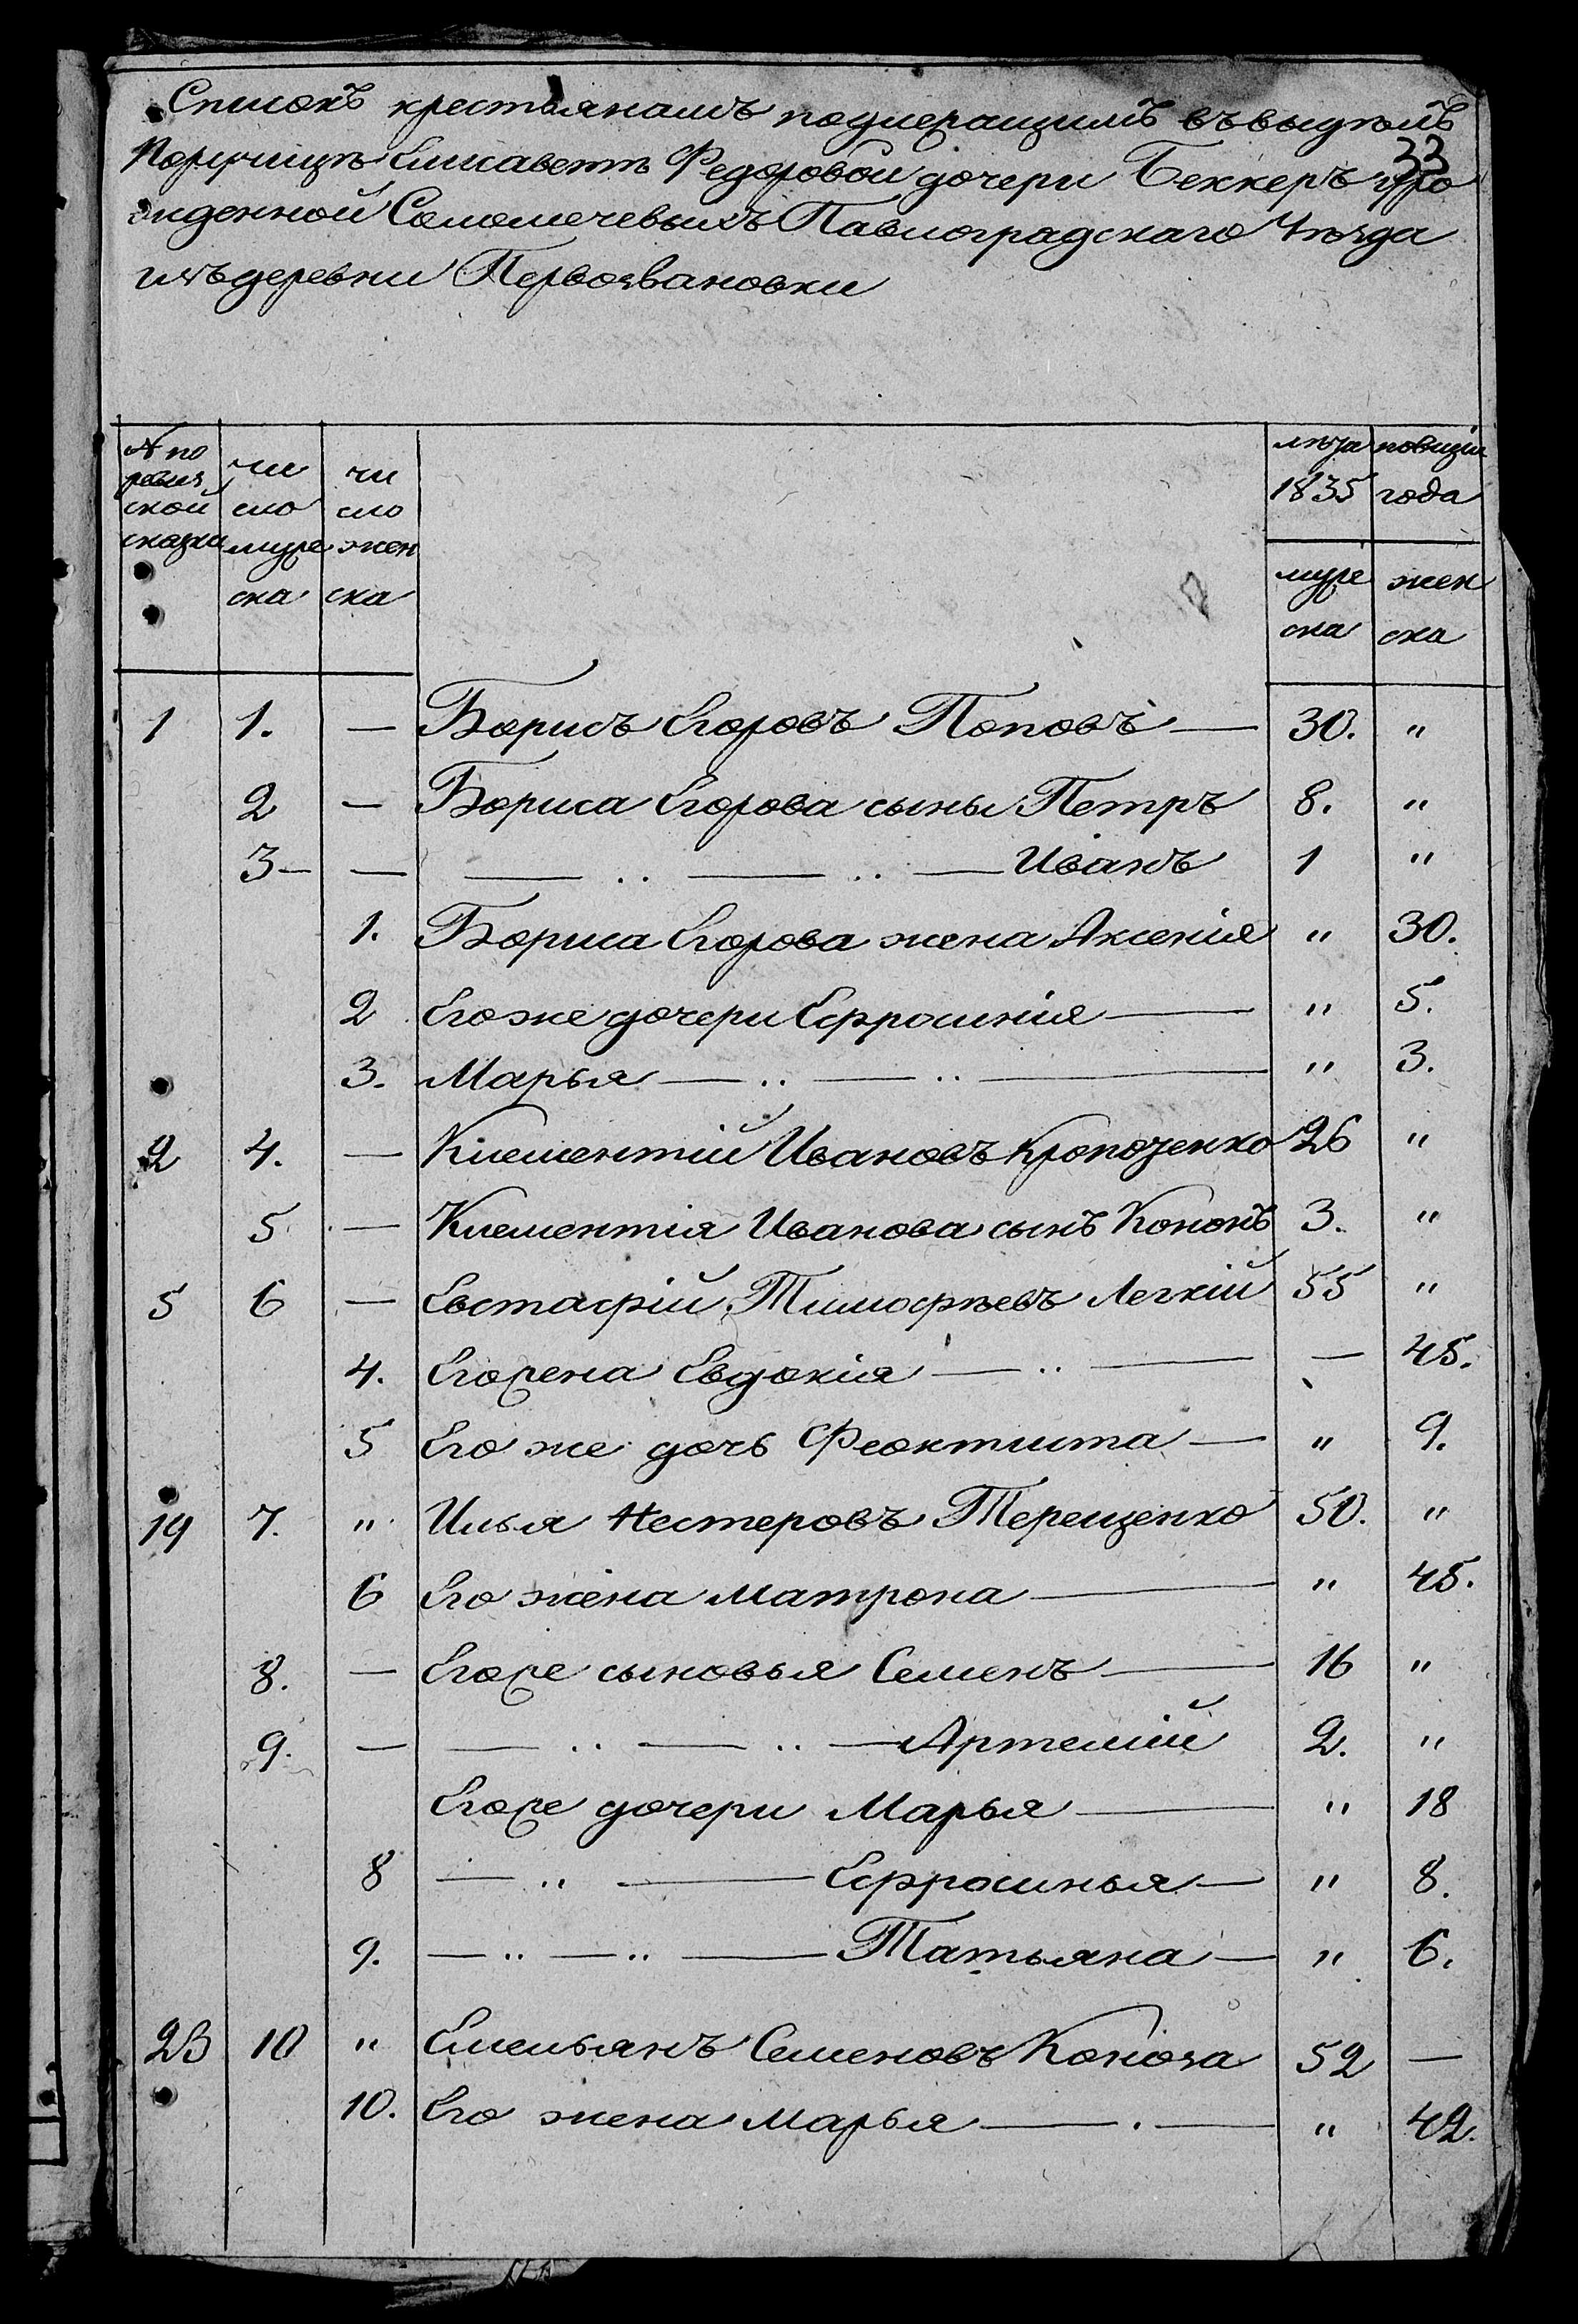 Списокъ крестьянамъ подлежащимъ въ выделъ
33
Порутчице Елисаветъ Федоровой дочери Беккеръ уро
жденной Саломачевыхъ Павлоградскаго Уѣзда
изъ деревни Первозвановки
№ по ревиз ской сказки
чи сло муже ска
чи сло жен ска
лѣта по визіи
1835 года
муже ска
жен ска
1 1. — Борисъ Егоровъ Поповъ — 30. "
2 — Бориса Егорова сыны Петръ 8. "
3 — — — .. — .. — Иванъ 1 "
1. Бориса Егорова жена Аксенія " 30.
2 Его же дочери Ефросинія — " 5.
3. Марья — .. — .. — " 3.
2 4. — Клементій Ивановъ 26 "
5 — Клементія Иванова сынъ Кононъ 3. "
5 6 — Евстафій Тимофѣевъ Легкій 55 "
4. Его жена Евдокія — .. — — 45.
5 Его же дочь Феоктиста — " 9.
19 7. " Илья Нестеровъ Терещенко 50. "
6 Его жена Матрона — " 45.
8. — Его же сыновья Семенъ — 16 "
9. — — .. — .. — Артемій 2. "
Его же дочери Марья — " 18
8 — .. — Ефросинья — " 8.
9. — .. — .. — Татьяна — " 6.
23 10 " Емельянъ Семеновъ 52 —
10. Его жена Марья — . — " 42.